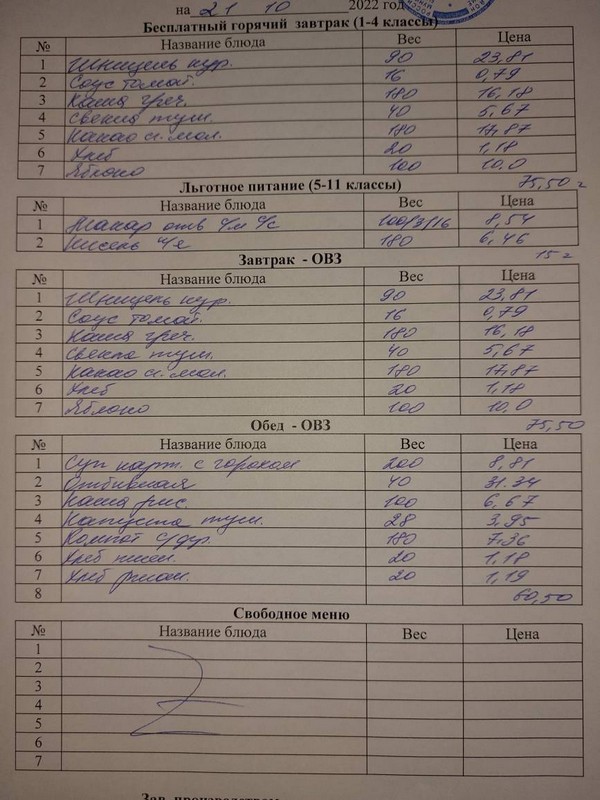 на 21 10 2022 год
Бесплатный горячий завтрак (1-4 классы)
№ Название блюда Вес Цена
1 Шницель кур. 90 23,81
2 Соус томат. 16 0,79
3 Каша греч. 180 16,18
4 Свекла туш. 40 5,67
5 Какао с мол. 180 17,87
6 Хлеб 20 1,18
7 Яблоко 100 10,0
Льготное питание (5-11 классы) 75,50
№ Название блюда Вес Цена
1 Макар отв с/м с/с 100/3/16 8,54
2 Кисель 180 6,46
Завтрак - ОВЗ 15
№ Название блюда Вес Цена
1 Шницель кур. 90 23,81
2 Соус томат. 16 0,79
3 Каша греч. 180 16,18
4 Свекла туш. 40 5,67
5 Какао с мол. 180 17,87
6 Хлеб 20 1,18
7 Яблоко 100 10,0
Обед - ОВЗ 75,50
№ Название блюда Вес Цена
1 Суп карт. с горохом 200 8,81
2 Отбивная 40 31.34
3 Каша рис. 100 6,67
4 Капуста туш. 28 3,95
5 Компот с/фр. 180 7,36
6 Хлеб пшен. 20 1,18
7 Хлеб ржан. 20 1,19
8 60,50
Свободное меню
№ Название блюда Вес Цена
1
2
3
4
5
6
7
Зав. производством